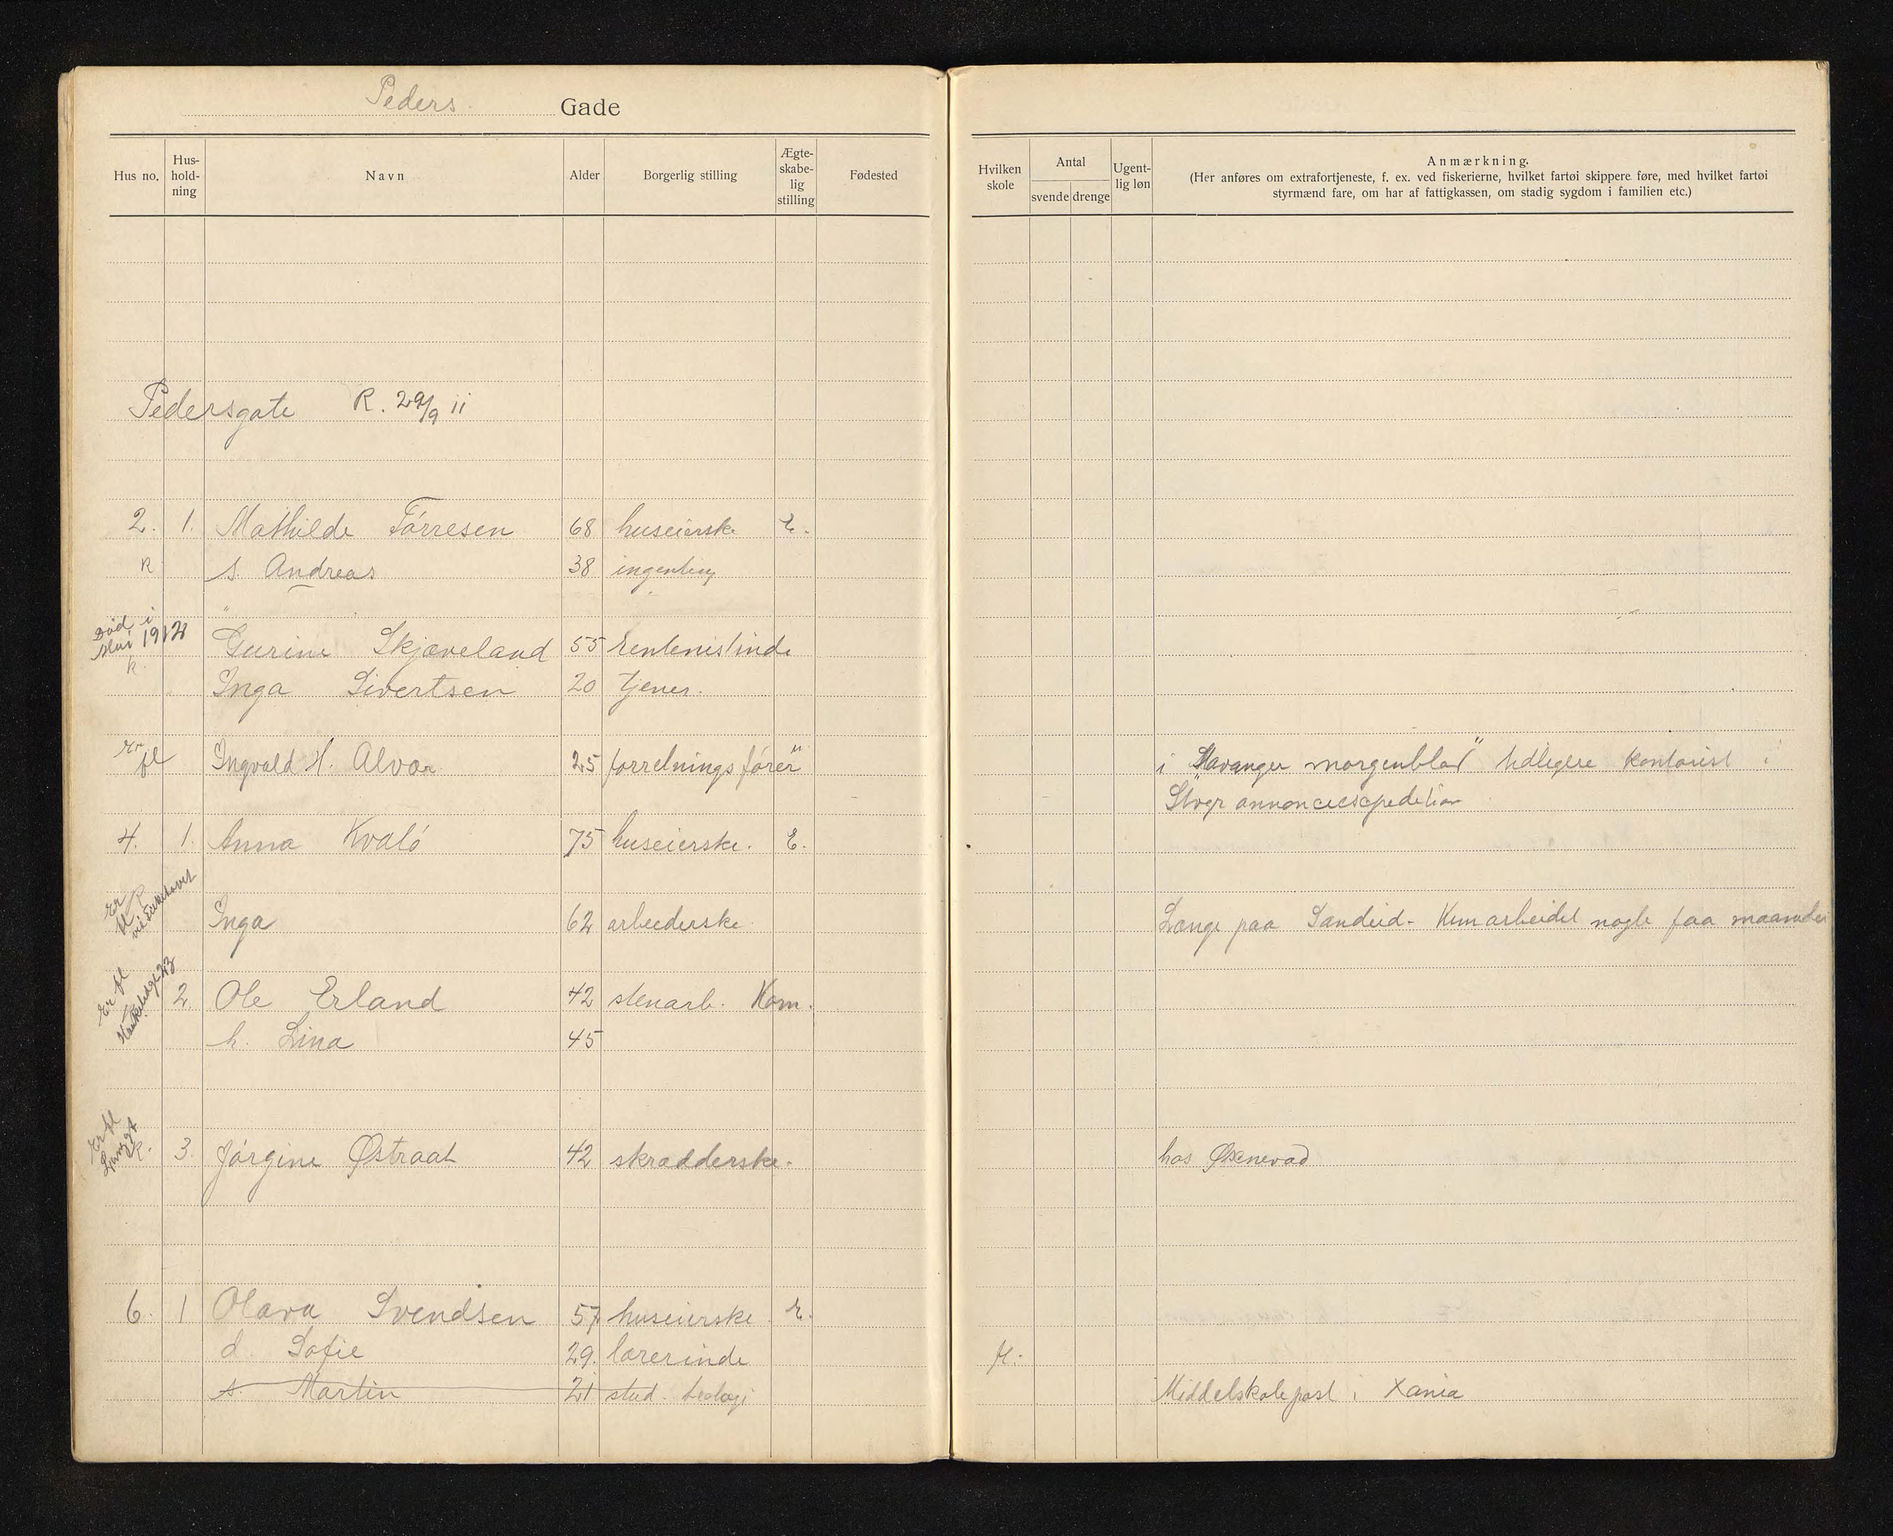 Peders. Gade
Hus no. Hus-hold-ning Navn Alder Borgerlig stilling Ægte-skabe-lig stilling Fødested
Hvilken skole Antal svende drenge Ugent-lig løn Anmærkning.
(Her anføres om extrafortjeneste, f. ex. ved fiskerierne, hvilket fartøi skippere føre, med hvilket fartøi
styrmænd fare, om har af fattigkassen, om stadig sygdom i familien etc.)
Pedersgate R. 29/9 11
2. 1. Mathilde Tórresen 68 huseierske E.
R s. Andreas 38 ingenting
Død i
Mai 1912
R. Gurine Skjæveland 55 rentenistinde
Inga Sivertsen 20 tjener.
Er fl Ingvald H. Alvær 25 forretningsfórer i "Stavanger morgenblad" tidligere kontorist i
Stvgr annonceexpedition
4. 1. Anna Kvaló 75 huseierske. E.
Er fl R
Inga 62 arbeiderske. Længe paa Sandeid. Kun arbeidet nogle faa maaneder
Er fl
2. Ole Erland 42 stenarb. Kom.
h. Lina 45
Er fl
Langgt
R. 3. Jórgine Østraat 42 skrædderske. hos Øksnevad
6. 1 Olava Svendsen 57 huseierske E.
d. Sofie 29. lærerinde
s. Martin 21 stud. teologi Middelskolepost i Xania